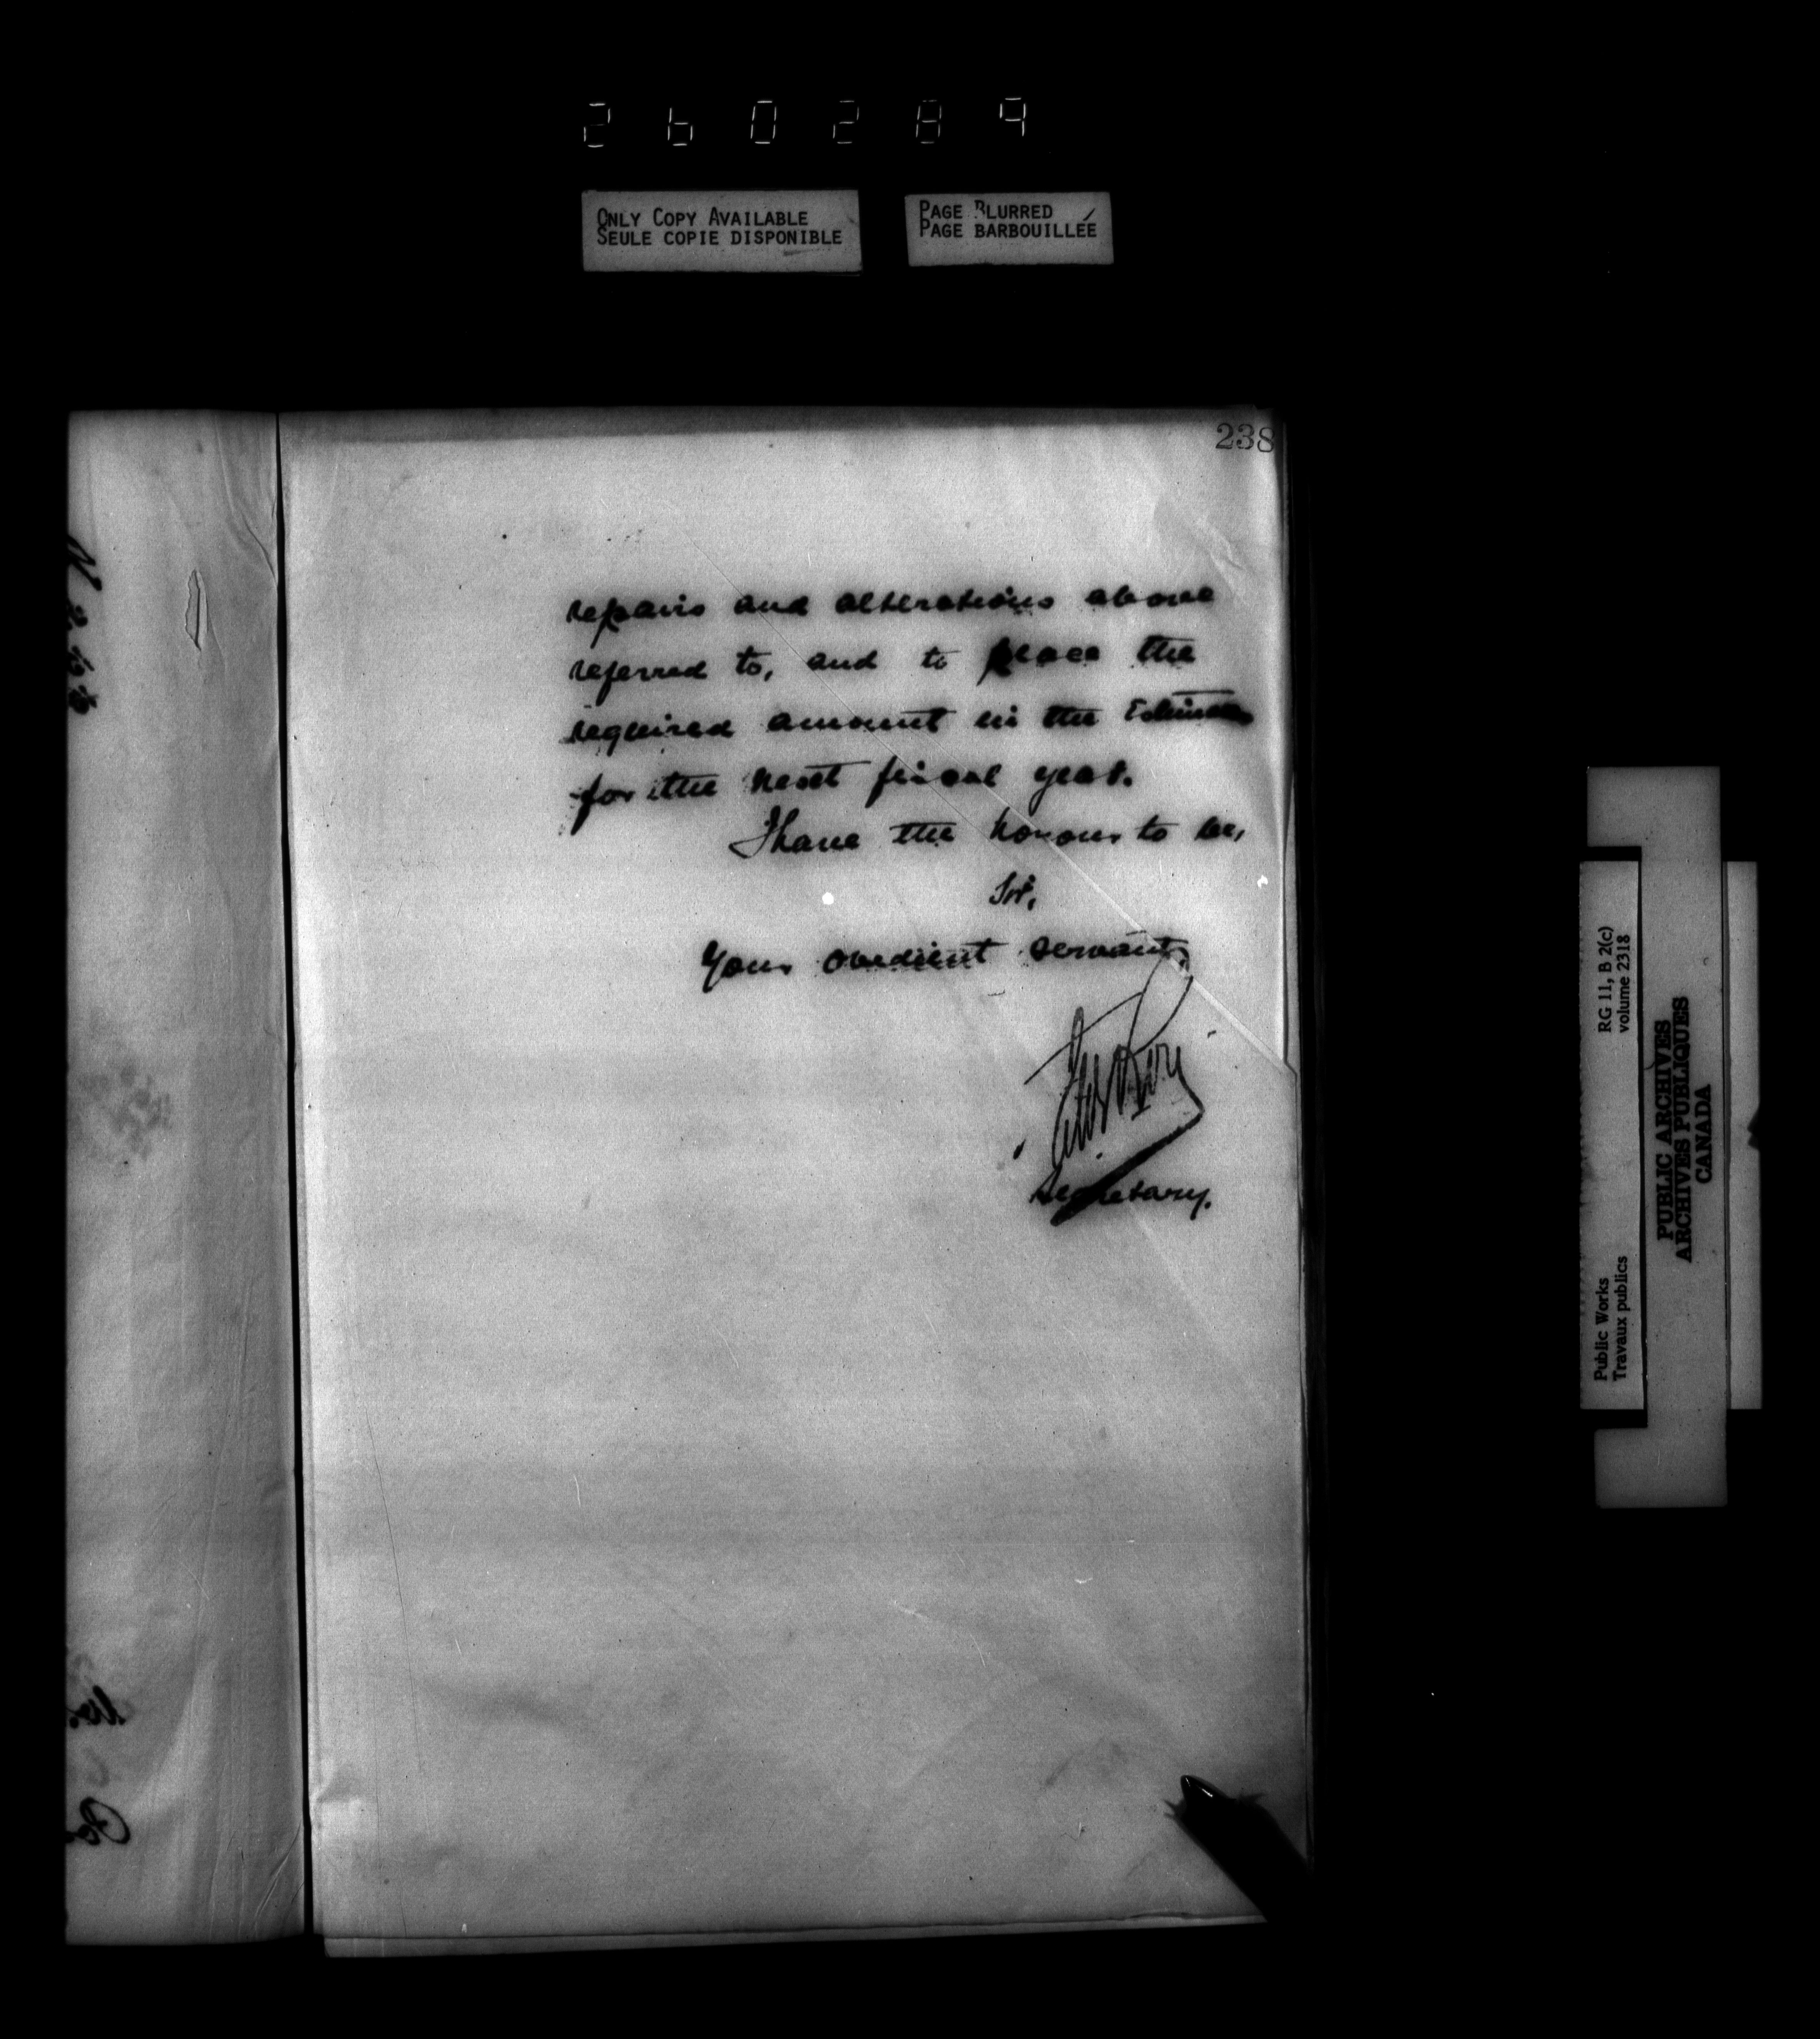 260289
ONLY COPY AVAILABLE
SEULE COPIE DISPONIBLE
PAGE BLURRED
PAGE BARBOUILLÉE
238
repairs and alterations above
referred to, and to place the
required amount in the Estimates
for the next fiscal year.
I have the honour to be,
Sir,
Your obedient servant,
Secretary.
RG 11, B 2(c)
volume 2318
Public Works
Travaux publics
PUBLIC ARCHIVES
ARCHIVES PUBLIQUES
CANADA